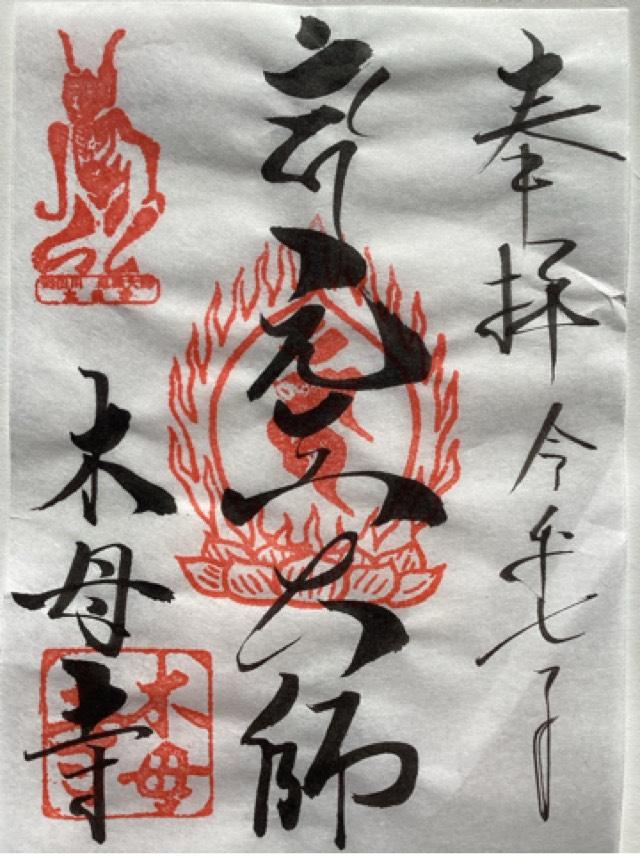 奉拝 令和七年
元三大師
木母寺
木母